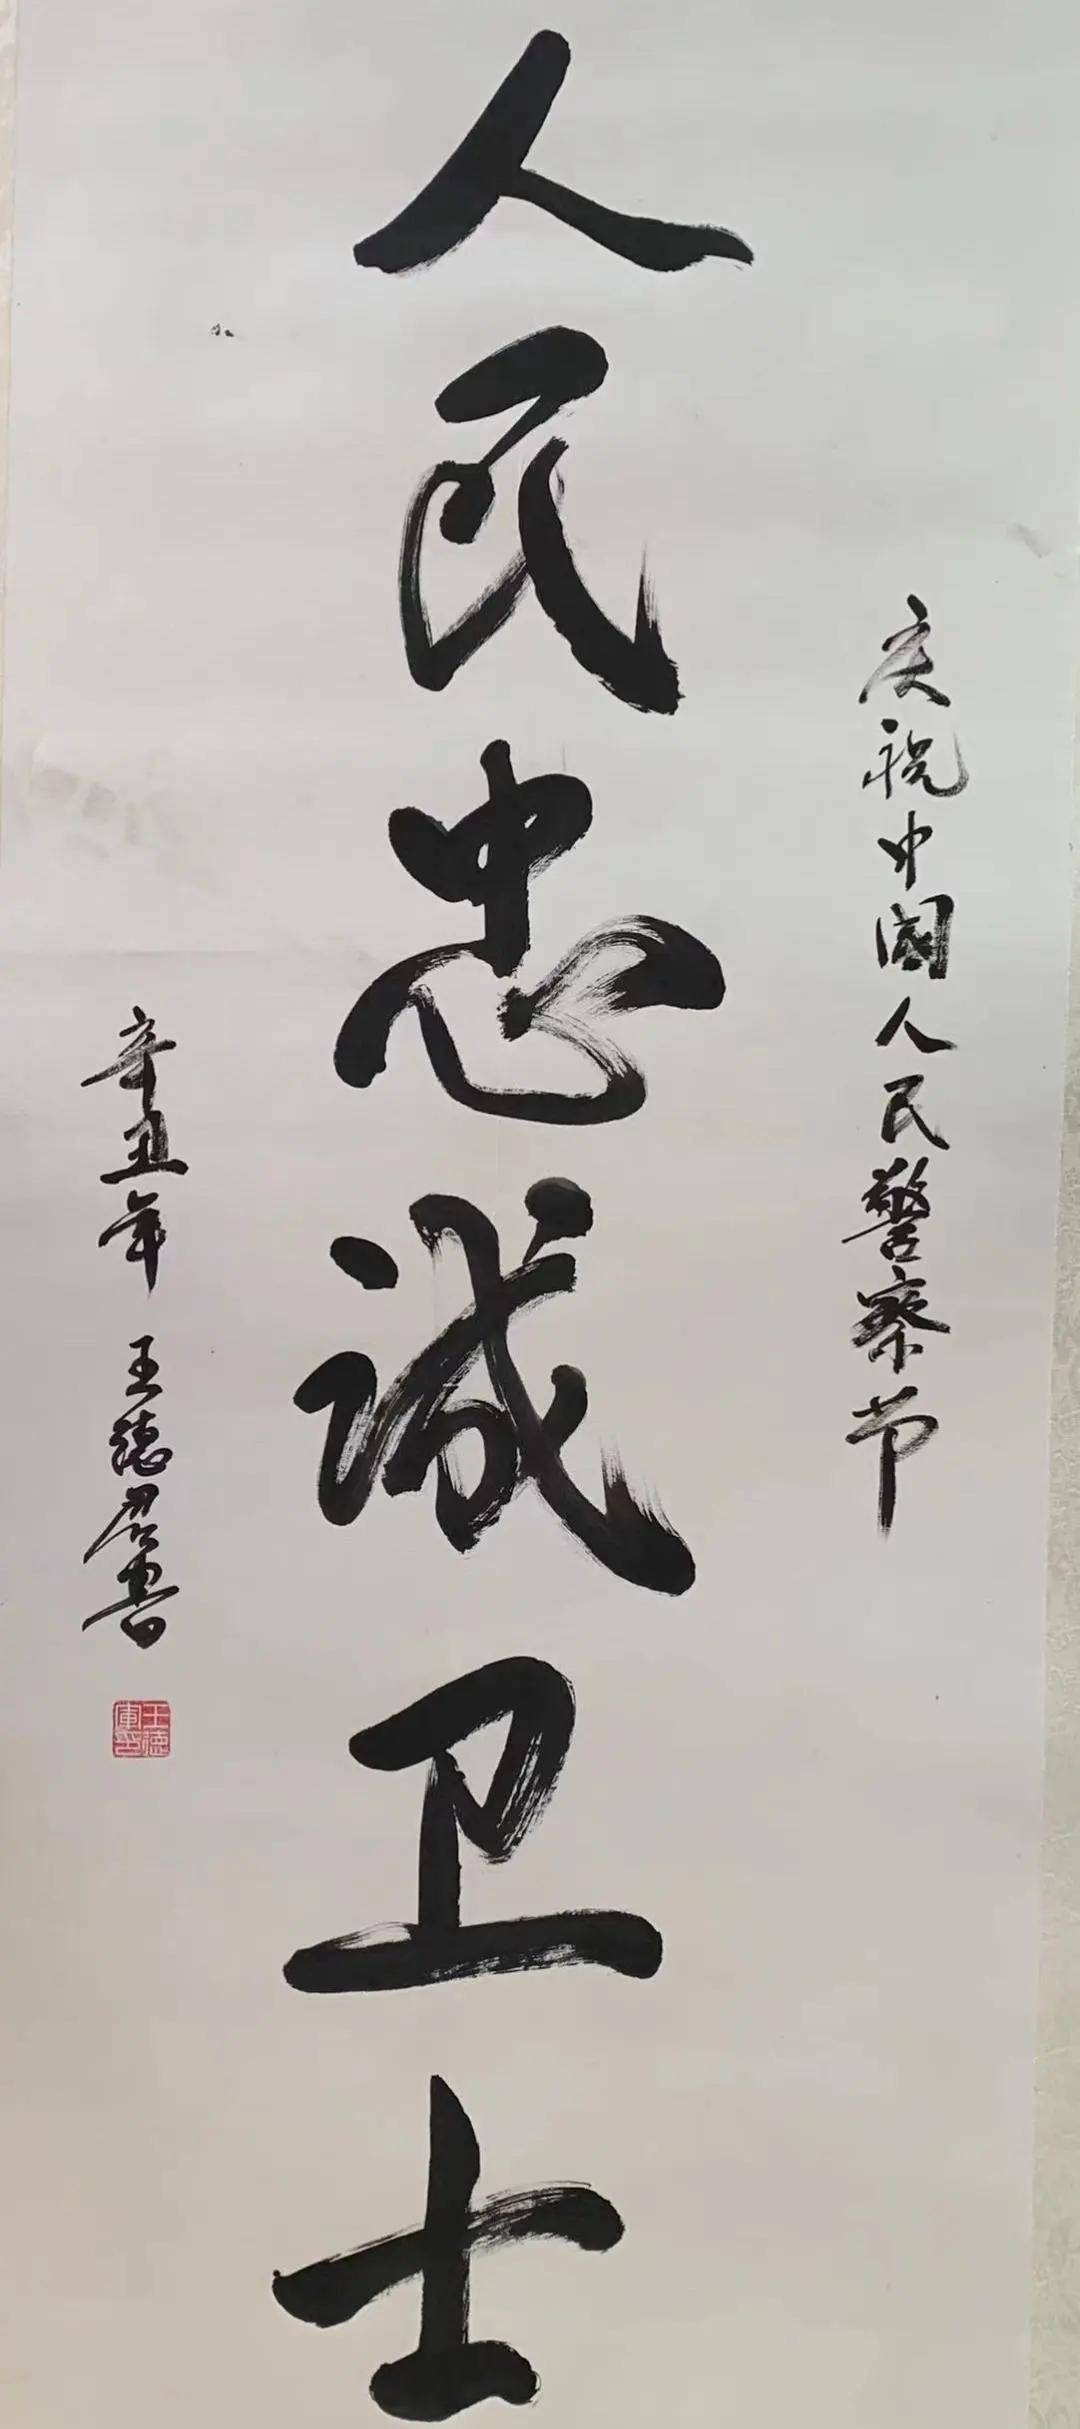 庆祝中國人民警察节
人民忠诚卫士
辛丑年 王德君書
王德